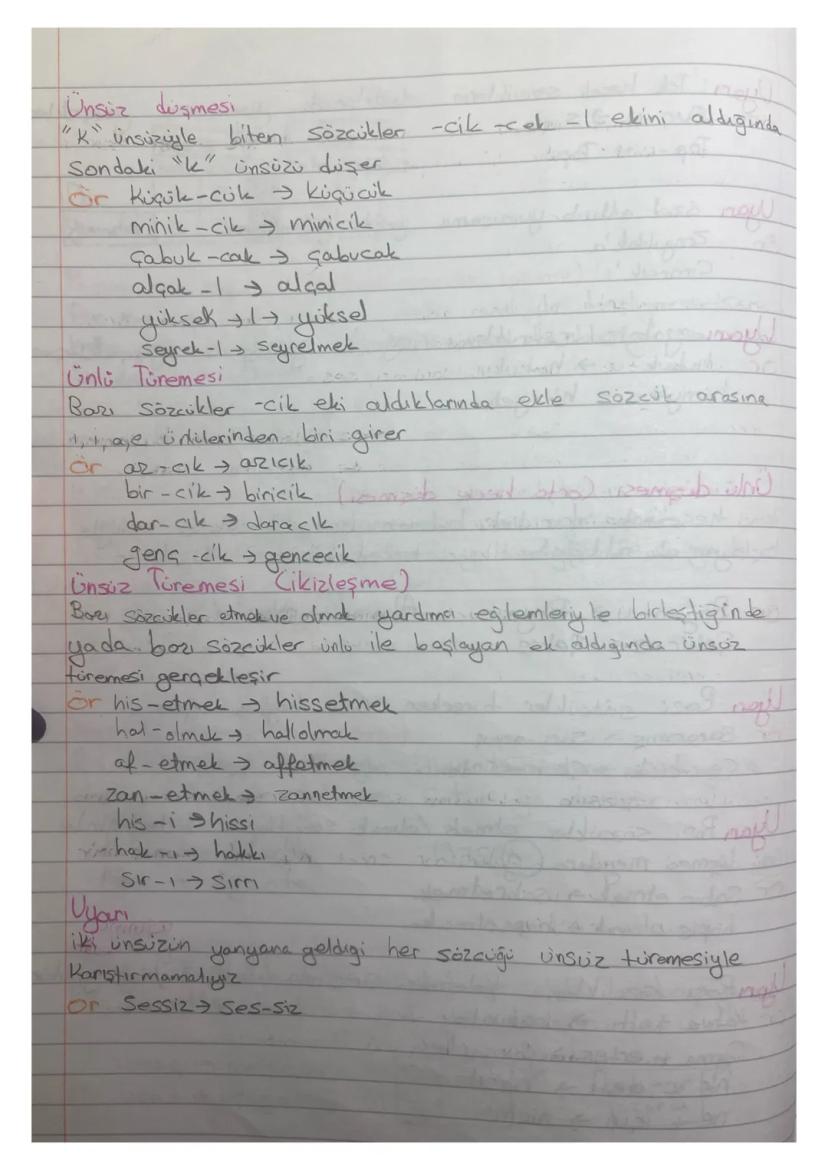 Ünsüz düşmesi
"K" ünsüzüyle biten sözcükler -cik -cek -l ekini aldığında
sondaki "k" ünsüzü düşer
Ör küçük-cük → küçücük
minik-cik → minicik
çabuk-cak → çabucak
alçak -l → alçal
yüksek → l → yüksel
seyrek-l → seyrelmek
Ünlü Türemesi
Bazı sözcükler -cik eki aldıklarında ekle sözcük arasına
ı, i, a, e ünlülerinden biri girer
Ör az-cık → azıcık
bir-cik → biricik
dar-cık → daracık
genç-cik → gencecik
Ünsüz Türemesi (ikizleşme)
Bazı sözcükler etmek ve olmak yardımcı eğlemleriyle birleştiğinde
yada bazı sözcükler ünlü ile başlayan ek aldığında ünsüz
türemesi gerçekleşir
Ör his-etmek → hissetmek
hal-olmak → hallolmak
af-etmek → affetmek
zan-etmek → zannetmek
his-i → hissi
hak-ı → hakkı
sır-ı → sırrı
Uyarı
iki ünsüzün yanyana geldiği her sözcüğü ünsüz türemesiyle
karıştırmamalıyız
Or Sessiz → Ses-siz